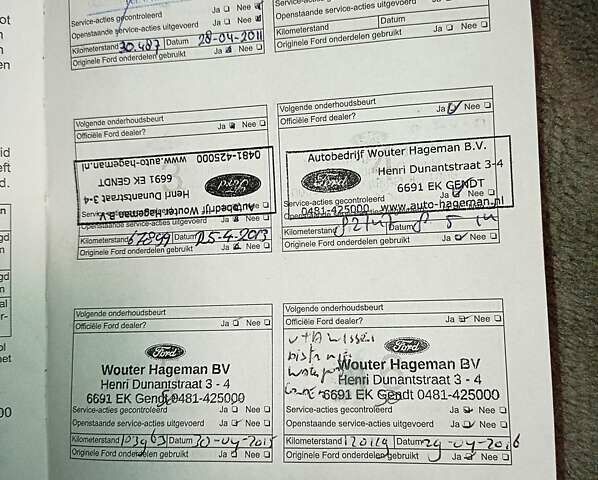 Service-acties gecontroleerd Ja Nee
Openstaande service-acties uitgevoerd Ja Nee
Kilometerstand 30.487 Datum 28-04-2011
Originele Ford onderdelen gebruikt Ja Nee
Service-acties gecontroleerd Ja Nee
Openstaande service-acties uitgevoerd Ja Nee
Kilometerstand Datum
Originele Ford onderdelen gebruikt Ja Nee
Volgende onderhoudsbeurt
Officiële Ford dealer? Ja Nee
Autobedrijf Wouter Hageman B.V.
Henri Dunantstraat 3-4
6691 EK GENDT
0481-425000 www.auto-hageman.nl
Ford
Openstaande service-acties uitgevoerd Ja Nee
Kilometerstand 67899 Datum 25-4-2013
Originele Ford onderdelen gebruikt Ja Nee
Volgende onderhoudsbeurt
Officiële Ford dealer? Ja Nee
Autobedrijf Wouter Hageman B.V.
Henri Dunantstraat 3-4
Ford
6691 EK GENDT
Service-acties gecontroleerd Ja Nee
0481-425000 www.auto-hageman.nl
Kilometerstand Datum 8 5 14
Originele Ford onderdelen gebruikt Ja Nee
Volgende onderhoudsbeurt
Officiële Ford dealer? Ja Nee
Ford
Wouter Hageman BV
Henri Dunantstraat 3 - 4
6691 EK Gendt 0481-425000
Service-acties gecontroleerd Ja Nee
Openstaande service-acties uitgevoerd Ja Nee
Kilometerstand 103963 Datum 30-04-2015
Originele Ford onderdelen gebruikt Ja Nee
Volgende onderhoudsbeurt
Officiële Ford dealer? Ja Nee
Ford
Wouter Hageman BV
Henri Dunantstraat 3 - 4
6691 EK Gendt 0481-425000
Service-acties gecontroleerd Ja Nee
Openstaande service-acties uitgevoerd Ja Nee
Kilometerstand 120119 Datum 29-04-2016
Originele Ford onderdelen gebruikt Ja Nee